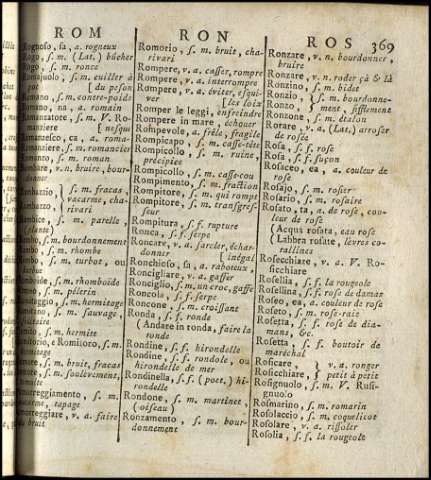 ROM
RON
ROS 369
Rognoso, sa, a. rogneux
Rogo, s. m. (Lat.) bûcher
s. m. ronce
s. m. cuiller à
pot [du peson
Romano, s. m. contre-poids
Romano, na, a. romain
Romanzatore, s. m. V. Ro-
manziere [nesque
Romanzesco, ca, a. roma-
Romanziere, s. m. romancier
Romanzo, s. m. roman
v. n. bruire, bour-
donner
s. m. fracas,
vacarme, cha-
rivari
s. m. parelle,
(plante)
Rombo, s. m. bourdonnement
s. m. rhombe
s. m. turbot, ou
s. m. rhomboïde
s. m. pélerin
s. m. hermitage
s. m. sauvage,
s. m. hermite
Romitorio, e Romitoro, s. m.
hermitage
s. m. bruit, fracas
s. m. soulevement,
s. m.
vacarme, tapage
v. a. faire
du bruit
Romorio, s. m. bruit, cha-
rivari
Rompere, v. a. casser, rompre
Rompere, v. a. interrompre
Rompere, v. a. éviter, esqui-
ver [les loix
Romper le leggi, enfreindre
Rompere in mare, échouer
Rompevole, a. frêle, fragile
Rompicapo, s. m. casse-tête
Rompicollo, s. m. ruine,
précipice
Rompicollo, s. m. casse-cou
Rompimento, s. m. fraction
Rompitore, s. m. qui rompt
Rompitore, s. m. transgres-
seur
Rompitura, s. f. rupture
Ronca, s. f. serpe
Roncare, v. a. sarcler, échar-
donner [inégal
Ronchioso, sa, a. raboteux,
Roncigliare, v. a. gaffer
Ronciglio, s. m. un croc, gaffe
Roncola, s. f. serpe
Roncone, s. m. croissant
Ronda, s. f. ronde
(Andare in ronda, faire la
ronde
Rondine, s. f. hirondelle
Rondine, s. f. rondole, ou
hirondelle de mer
Rondinella, s. f. (poet.) hi-
rondelle
Rondone, s. m. martinet,
(oiseau)
Ronzamento, s. m. bour-
donnement
Ronzare, v. n. bourdonner,
bruire
Ronzare, v. n. roder çà & là
Ronzino, s. m. bidet
Ronzio, s. m. bourdonne-
Ronzo, ment, sifflement
Ronzone, s. m. étalon
Rorare, v. a. (Lat.) arroser
de rosée
Rosa, s. f. rose
Rosa, s. f. suçon
Rosaceo, ea, a. couleur de
rose
Rosajo, s. m. rosier
Rosario, s. m. rosaire
Rosato, ta, a. de rose, cou-
leur de rose
(Acqua rosata, eau rose
(Labbra rosate, lèvres co-
raillines
Rosecchiare, v. a. V. Ro-
sicchiare
Rosellia, s. f. la rougeole
Rosellina, s. f. rose de damas
Roseo, ea, a. couleur de rose
Roseto, s. m. rose-raie
Rosetta, s. f. rose de dia-
mans, &c.
Rosetta, s. f. boutoir de
maréchal
Rosicare, v. a. ronger
Rosicchiare, petit à petit
Rosignuolo, s. m. V. Rusi-
gnuolo
Rosmarino, s. m. romarin
Rosolaccio, s. m. coquelicot
Rosolare, v. a. rissoler
Rosolia, s. f. la rougeole